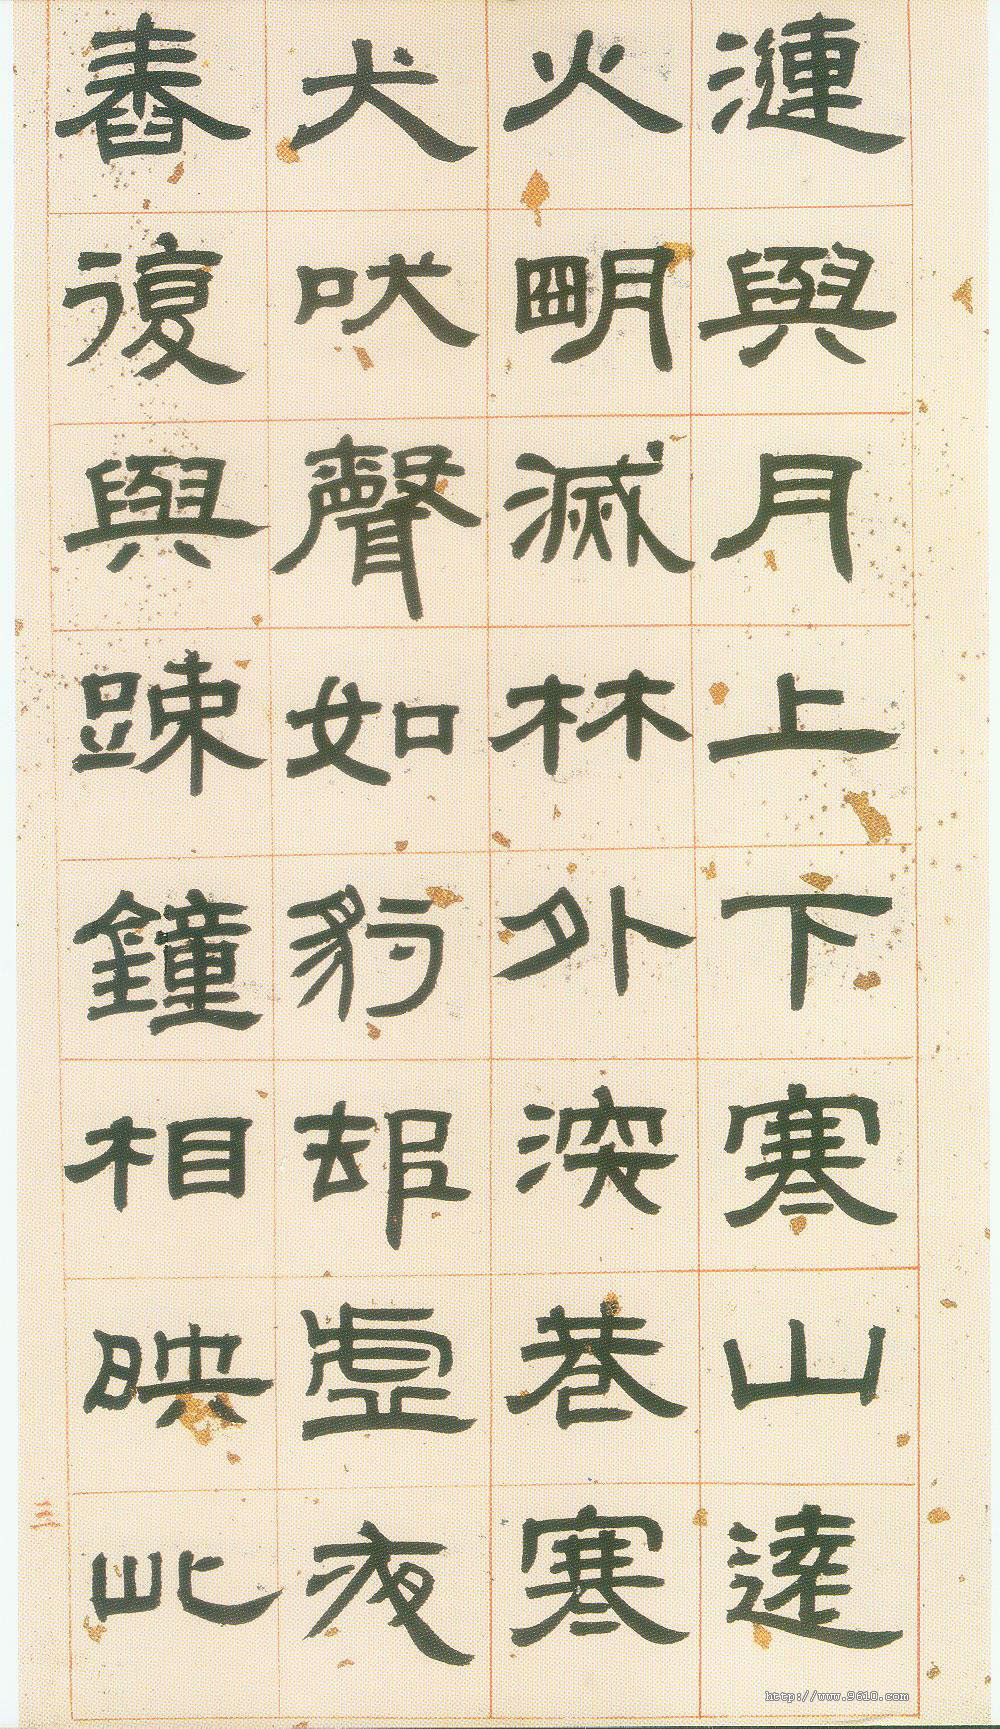 漣與月上下寒山遠
火明滅林外深巷寒
犬吠聲如豹邨虛夜
舂復與疎鐘相映此
三
http://www.9610.com